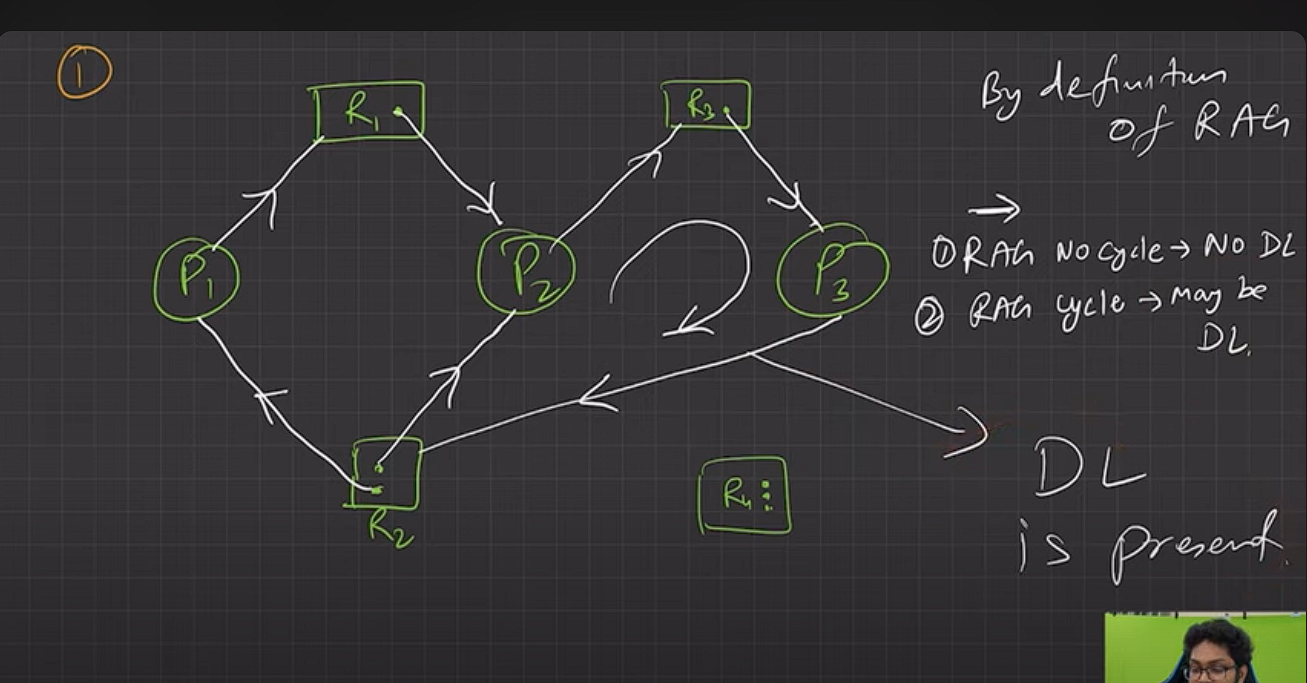 1
R1
R3
P1
P2
P3
R2
R4
By definition
of RAG
→
① RAG No cycle → No DL
② RAG cycle → May be
DL.
DL
is present.